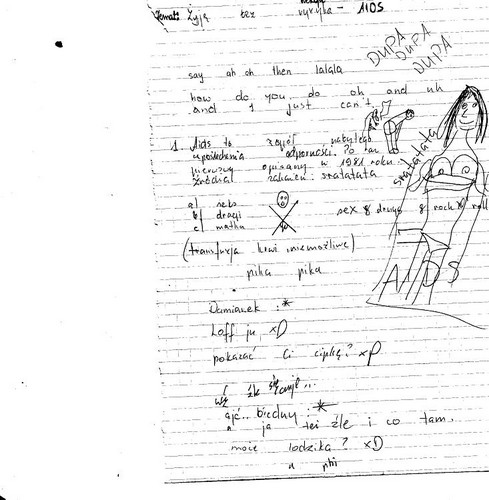 Temat: Żyję bez ryzyka - AIDS
DUPA
DUPA
DUPA
say ah oh then lalala
how do you do oh and uh
and I just can't
1. Aids to zespół nabytego
upośledzenia odporności. Po raz
pierwszy opisany w 1981 roku.
źródła zakażeń: sratatata
sratatata
a) seks
b) dragi
c) matka
sex & drugs & rock & roll
(transfuzja krwi niemożliwe)
pika pika
AIDS
Damianek :*
Loff ju xD
pokazać Ci cipkę? xP
źle się czuję...
ojć.. biedny :*
ja też źle i co tam.
może lodzika? xD
a phi